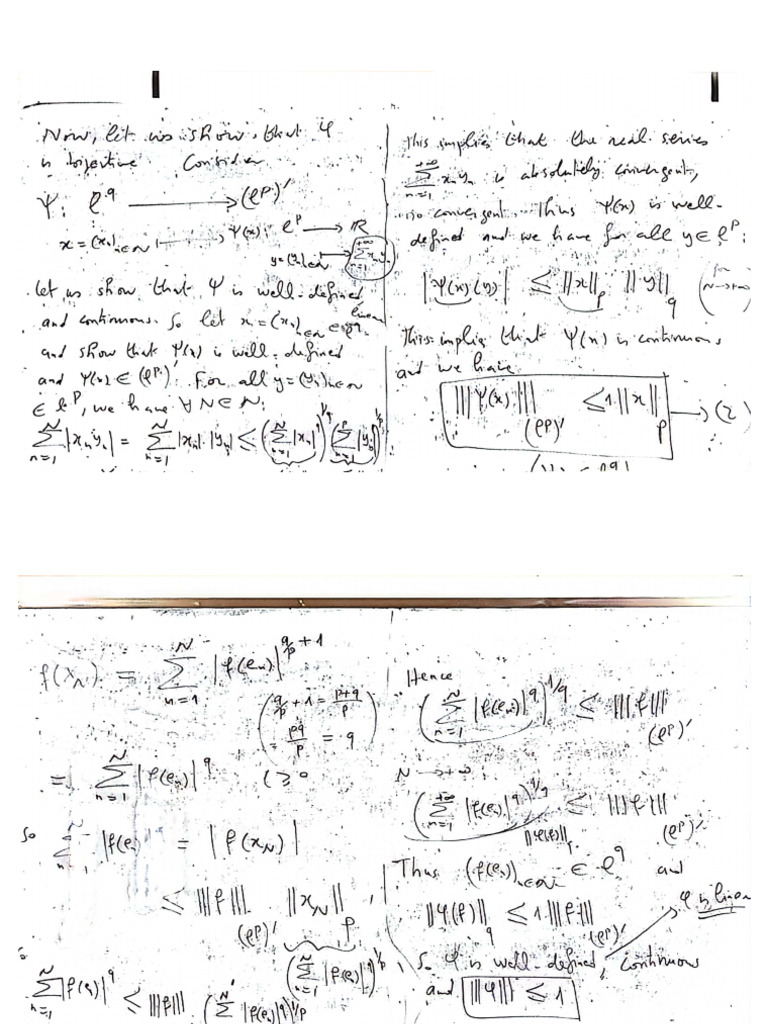 Now, let us show that φ
is bijective. Consider
Ψ: ℓ^q ⟶ (ℓ^p)'
x = (x_n)_{n∈N} ⟼ Ψ(x): ℓ^p ⟶ R
y = (y_n)_{n∈N} ⟼ ∑_{n=1}^{+∞} x_n y_n
Let us show that Ψ is well-defined
linear
and continuous. So let x = (x_n)_{n∈N} ∈ ℓ^q
and show that Ψ(x) is well-defined
and Ψ(x) ∈ (ℓ^p)'. For all y = (y_n)_{n∈N}
∈ ℓ^p, we have ∀ N ∈ N:
∑_{n=1}^{N} |x_n y_n| = ∑_{n=1}^{N} |x_n| |y_n| ≤ (∑_{n=1}^{N} |x_n|^q)^{1/q} (∑_{n=1} |y_n|^p)^{1/p}
This implies that the real series
∑_{n=1}^{+∞} x_n y_n is absolutely convergent,
so convergent. Thus Ψ(x) is well-
defined and we have for all y ∈ ℓ^p:
|Ψ(x)(y)| ≤ ||x||_p ||y||_q (for N→+∞)
This implies that Ψ(x) is continuous
and we have
|||Ψ(x)|||_{(ℓ^p)'} ≤ 1·||x||_p ⟶ (2)
f(x_N) = ∑_{n=1}^{N} |f(e_n)|^{q/p + 1}
(q/p + 1 = (p+q)/p
= pq/p = q)
= ∑_{n=1}^{N} |f(e_n)|^q (≥ 0
so ∑_{n=1} |f(e_n) = |f(x_N)|
≤ |||f|||_{(ℓ^p)'} ||x_N||_p
(∑_{n=1}^{N} |f(e_n)|^q)^{1/p}
so
∑_{n=1}^{N} |f(e_n)|^q ≤ |||f||| (∑^{N} |f(e_n)|^q)^{1/p}
Hence
(∑_{n=1}^{N} |f(e_n)|^q)^{1/q} ≤ |||f|||_{(ℓ^p)'}
N → +∞
(∑_{n=1}^{+∞} |f(e_n)|^q)^{1/q} ≤ |||f|||_{(ℓ^p)'}
||φ(f)||
Thus (f(e_n))_{n∈N} ∈ ℓ^q and
||φ(f)||_q ≤ 1 |||f|||_{(ℓ^p)'}
φ is linear
So φ is well-defined, continuous
and |||φ||| ≤ 1